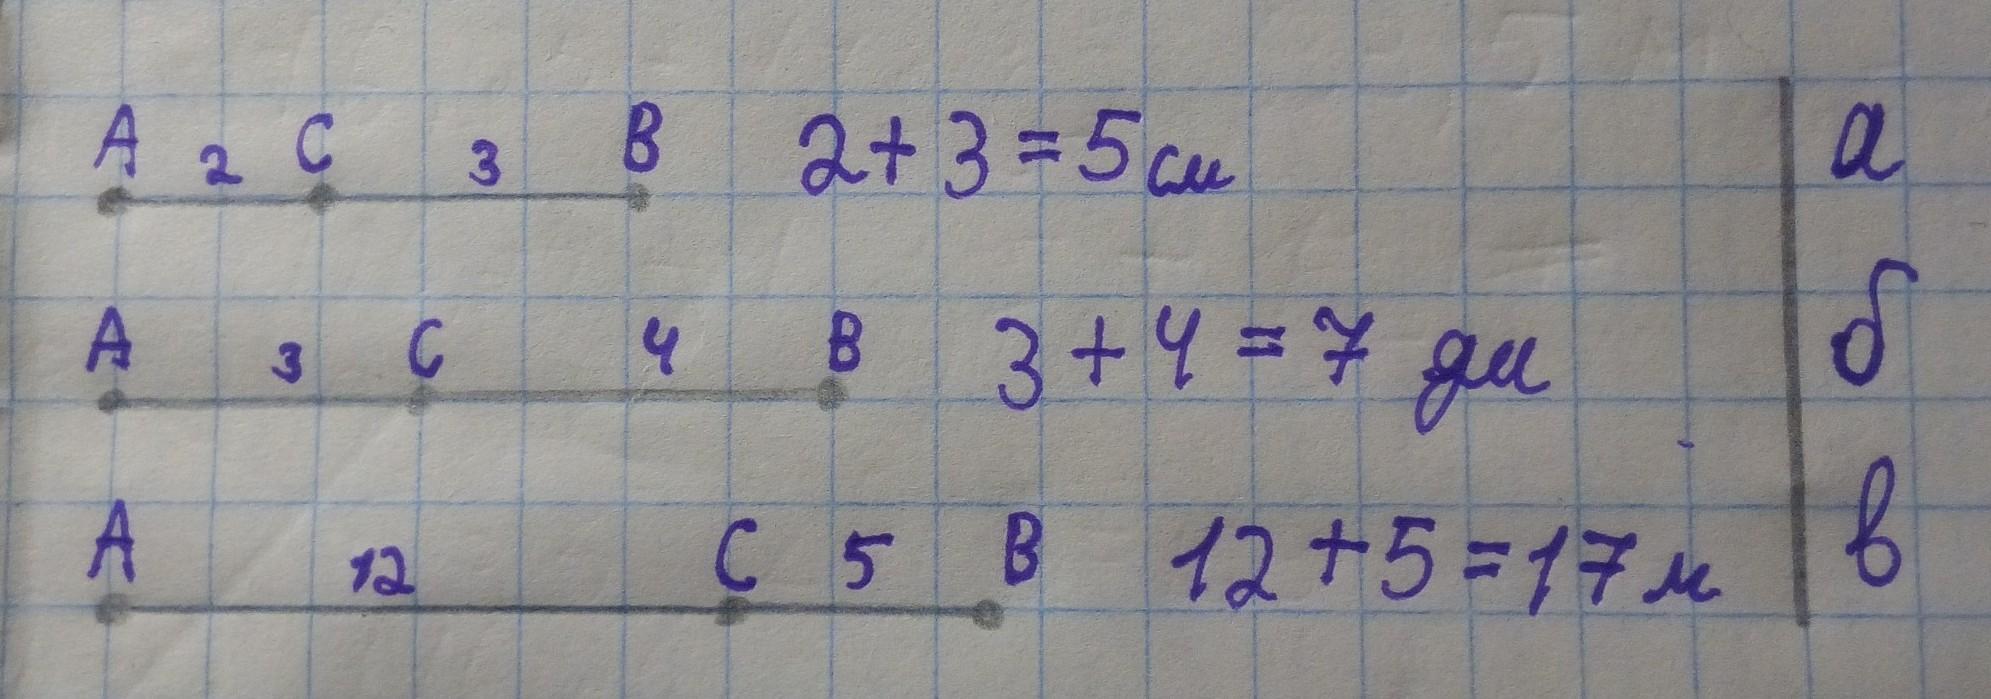 А 2 С 3 В 2+3=5 см а
А 3 С 4 В 3+4=7 дм б
А 12 С 5 В 12+5=17 м в